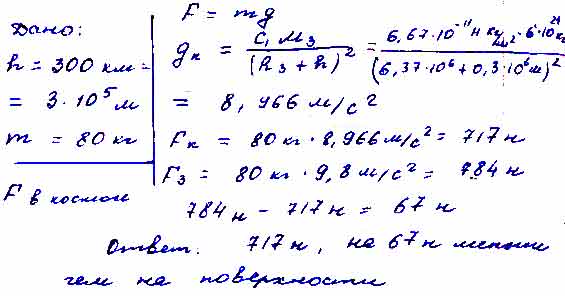 Дано:
h = 300 км =
= 3·10⁵ м
m = 80 кг
F в космосе
F = mg
gк = G M₃ / (R₃ + h)² = 6,67·10⁻¹¹ Н кг/м²·6·10²⁴ кг / (6,37·10⁶ + 0,3·10⁶ м)²
= 8,966 м/с²
Fк = 80 кг · 8,966 м/с² = 717 н
F₃ = 80 кг · 9,8 м/с² = 784 н
784 н - 717 н = 67 н
Ответ. 717 н, на 67 н меньше
чем на поверхности